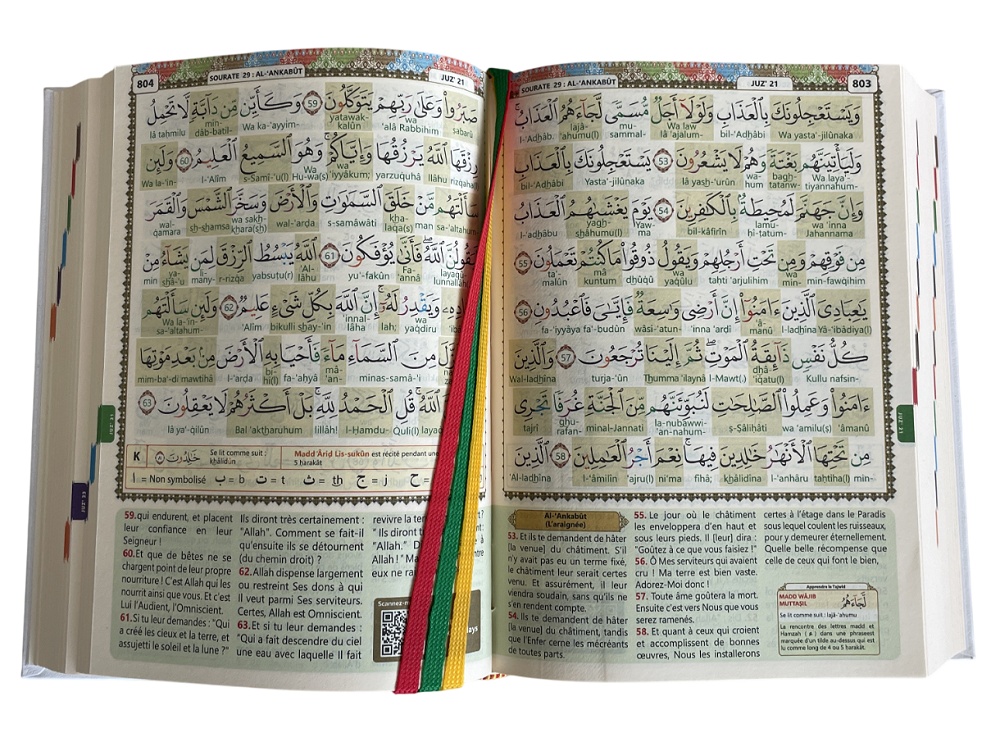 SOURATE 29 : AL-'ANKABÛT JUZ' 21 803
وَيَسْتَعْجِلُونَكَ بِالْعَذَابِ وَلَوْلَا أَجَلٌ مُّسَمًّى لَّجَاءَهُمُ الْعَذَابُ
Wa yasta'-jilûnaka bil-'Adhâbi Wa law lâ 'ajalum- mu-sammal- lajâ-'ahumu(l) l-'Adhâb.
وَلَيَأْتِيَنَّهُم بَغْتَةً وَهُمْ لَا يَشْعُرُونَ 53 يَسْتَعْجِلُونَكَ بِالْعَذَابِ
Wa laya'-tiyannahum- bagh-tatanw- wa-hum lâ yash-'urûn Yasta'-jilûnaka bil-'Adhâbi
وَإِنَّ جَهَنَّمَ لَمُحِيطَةٌ بِالْكَافِرِينَ 54 يَوْمَ يَغْشَاهُمُ الْعَذَابُ
wa 'inna Jahannama lamu-hî-tatum- bil-kâfirîn Yaw-ma yagh-shâhumu(l) l-'adhâbu
مِن فَوْقِهِمْ وَمِن تَحْتِ أَرْجُلِهِمْ وَيَقُولُ ذُوقُوا مَا كُنتُمْ تَعْمَلُونَ 55
min-fawqihim wa min- tahti 'arjulihim wa yaqûlu dhûqû mâ kuntum- ta'-malûn
يَا عِبَادِيَ الَّذِينَ آمَنُوا إِنَّ أَرْضِي وَاسِعَةٌ فَإِيَّايَ فَاعْبُدُونِ 56
Yâ-'ibâdiya(l) l-ladhîna 'âmanû 'inna 'ardî wâsi-'atun- fa-'iyyâya fa'-budûn
كُلُّ نَفْسٍ ذَائِقَةُ الْمَوْتِ ثُمَّ إِلَيْنَا تُرْجَعُونَ 57 وَالَّذِينَ
Kullu nafsin- dhâ-'iqatu(l) l-Mawt(.) Thumma 'ilaynâ turja-'ûn Wal-ladhîna
آمَنُوا وَعَمِلُوا الصَّالِحَاتِ لَنُبَوِّئَنَّهُم مِّنَ الْجَنَّةِ غُرَفًا تَجْرِي
'âmanû wa 'amilu(s) s-Sâlihâti la-nubawwi-'an-nahum- minal-Jannati ghu-rafan- tajrî
مِن تَحْتِهَا الْأَنْهَارُ خَالِدِينَ فِيهَا نِعْمَ أَجْرُ الْعَامِلِينَ 58 الَّذِينَ
min- tahtiha(l) l-'anhâru khâlidîna fîhâ; ni'ma 'ajru(l) l-'âmilîn 'Al-ladhîna
Al-'Ankabût
(L'araignée)
53. Et ils te demandent de hâter
[la venue] du châtiment. S'il
n'y avait pas eu un terme fixé,
le châtiment leur serait certes
venu. Et assurément, il leur
viendra soudain, sans qu'ils ne
s'en rendent compte.
54. Ils te demandent de hâter
[la venue] du châtiment, tandis
que l'Enfer cerne les mécréants
de toutes parts.
55. Le jour où le châtiment
les enveloppera d'en haut et
sous leurs pieds. Il [leur] dira :
"Goûtez à ce que vous faisiez !"
56. Ô Mes serviteurs qui avaient
cru ! Ma terre est bien vaste.
Adorez-Moi donc !
57. Toute âme goûtera la mort.
Ensuite c'est vers Nous que vous
serez ramenés.
58. Et quant à ceux qui croient
et accomplissent de bonnes
œuvres, Nous les installerons
certes à l'étage dans le Paradis
sous lequel coulent les ruisseaux,
pour y demeurer éternellement.
Quelle belle récompense que
celle de ceux qui font le bien,
Apprendre le Tajwîd
MADD WÂJIB
MUTTASIL لَّجَاءَهُمُ
Se lit comme suit : lajâ-'ahumu
La rencontre des lettres madd et
Hamzah ( ء ) dans une phraseest
marquée d'un tilde au-dessus qui est
lu comme long de 4 ou 5 harakât.
JUZ' 21
804 SOURATE 29 : AL-'ANKABÛT JUZ' 21
صَبَرُوا وَعَلَىٰ رَبِّهِمْ يَتَوَكَّلُونَ 59 وَكَأَيِّن مِّن دَابَّةٍ لَّا تَحْمِلُ
sabarû wa 'alâ Rabbihim yatawak-kalûn Wa ka-'ayyim- min- dâb-batil- lâ tahmilu
رِزْقَهَا اللَّهُ يَرْزُقُهَا وَإِيَّاكُمْ وَهُوَ السَّمِيعُ الْعَلِيمُ 60 وَلَئِن
rizqaha(l) llâhu yarzuquhâ wa 'iyyâkum; wa Hu-wa(s) s-Samî-'u(l) l-'Alîm Wa la-'in-
سَأَلْتَهُم مَّنْ خَلَقَ السَّمَاوَاتِ وَالْأَرْضَ وَسَخَّرَ الشَّمْسَ وَالْقَمَرَ
sa-'altahum- man kha-laqa(s) s-samâwâti wal-'arda wa sakh-khara(sh) sh-shamsa wal-qamara
لَيَقُولُنَّ اللَّهُ فَأَنَّىٰ يُؤْفَكُونَ 61 اللَّهُ يَبْسُطُ الرِّزْقَ لِمَن يَشَاءُ مِنْ
Fa-'annâ yu'-fakûn 'Al-lâhu yabsutu(r) r-rizqa li-many- ya-shâ-'u min
وَيَقْدِرُ لَهُ إِنَّ اللَّهَ بِكُلِّ شَيْءٍ عَلِيمٌ 62 وَلَئِن سَأَلْتَهُم
wa yaqdiru lah; 'innal-lâha bikulli shay-'in 'Alîm Wa la-'in- sa-'altahum
مِنَ السَّمَاءِ مَاءً فَأَحْيَا بِهِ الْأَرْضَ مِن بَعْدِ مَوْتِهَا
minas-samâ-'i mâ-'an- fa-'ahyâ bi-hi(l) l-'arda mim-ba'-di mawtihâ
اللَّهُ قُلِ الْحَمْدُ لِلَّهِ بَلْ أَكْثَرُهُمْ لَا يَعْقِلُونَ 63
Quli(l) l-Hamdu- lillâh! Bal 'aktharuhum lâ ya'-qilûn
K خَالِدُونَ Se lit comme suit : khâlidûn Madd 'Ârid Lis-sukûn est récité pendant une
5 harakât
ا = Non symbolisé ب = b ت = t ث = th ج = j ح =
59. qui endurent, et placent
leur confiance en leur
Seigneur !
60. Et que de bêtes ne se
chargent point de leur propre
nourriture ! C'est Allah qui les
nourrit ainsi que vous. Et c'est
Lui l'Audient, l'Omniscient.
61. Si tu leur demandes : "Qui
a créé les cieux et la terre, et
assujetti le soleil et la lune ?"
Ils diront très certainement :
"Allah". Comment se fait-il
qu'ensuite ils se détournent
(du chemin droit) ?
62. Allah dispense largement
ou restreint Ses dons à qui
Il veut parmi Ses serviteurs.
Certes, Allah est Omniscient.
63. Et si tu leur demandes :
"Qui a fait descendre du ciel
une eau avec laquelle Il fait
revivre la
"Allah."
Allah ! "
eux ne